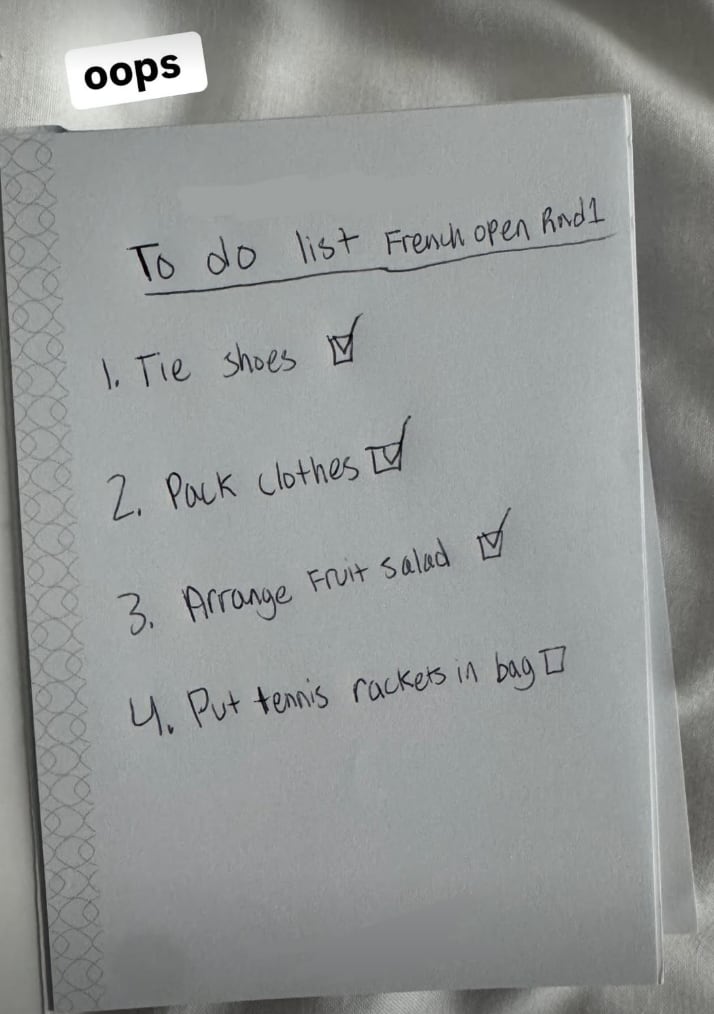 oops
To do list French open Rnd1
1. Tie shoes
2. Pack clothes
3. Arrange Fruit salad
4. Put tennis rackets in bag